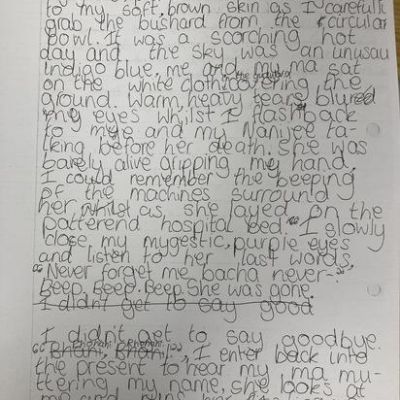 to my soft brown skin as I carefully
grab the bushard from the circular
bowl. It was a scorching hot
day and the sky was an unusau
indigo blue, me and my ma sat
on the white cloth covering the
ground. Warm, heavy tears blured
my eyes whilst I flashback
to me and my Nanijee ta-
lking before her death. She was
barely alive gripping my hand.
I could remember the beeping
of the machines surround
her, whilst as, she layed on the
patterend hospital bed. I slowly
close my mygestic, purple eyes
and listen to her last words
"Never forget me bacha never-"
Beep. Beep. Beep. She was gone.
I didn't get to say good
I didn't get to say goodbye.
I enter back into
the present to hear my ma mu-
ttering my name, she looks at
me and runs her